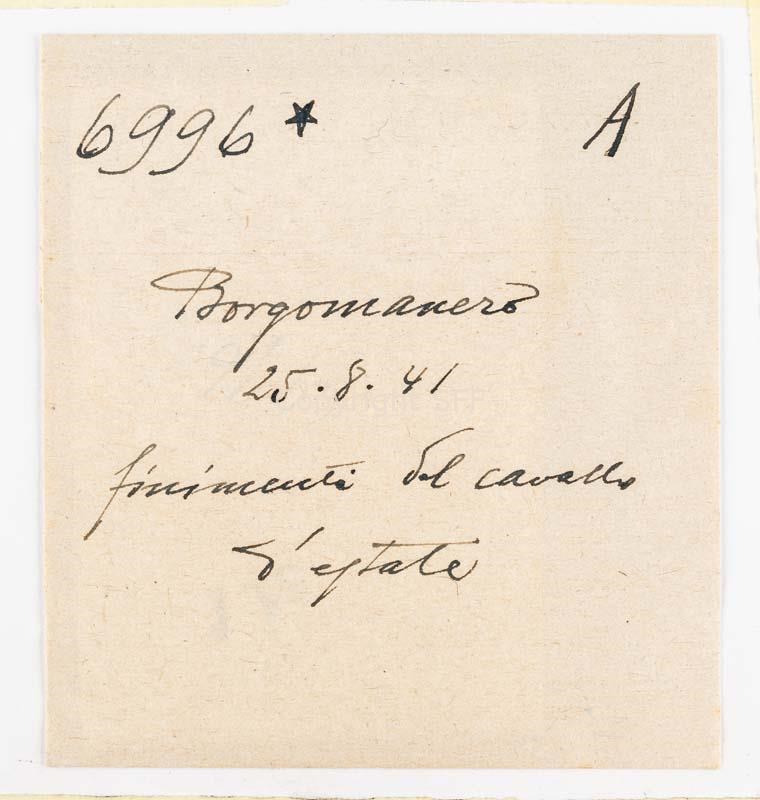 6996 ★ A
Borgomanero
25.8.41
finimenti del cavallo
d'estate